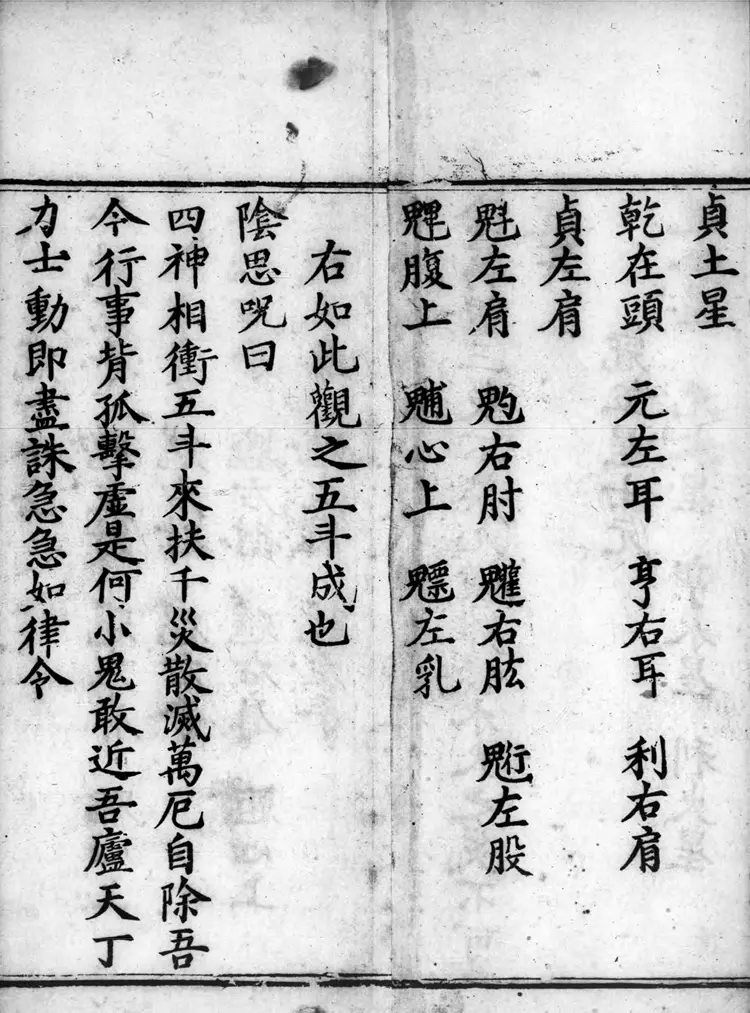 貞土星
乾在頭　元左耳　亨右耳　利右肩
貞左肩
魁左肩　右肘　右肱　左股
腹上　心上　魒左乳
右如此觀之五斗成也
陰思呪曰
四神相衝五斗來扶千災散滅萬厄自除吾
今行事背孤擊虛是何小鬼敢近吾廬天丁
力士動即盡誅急急如律令